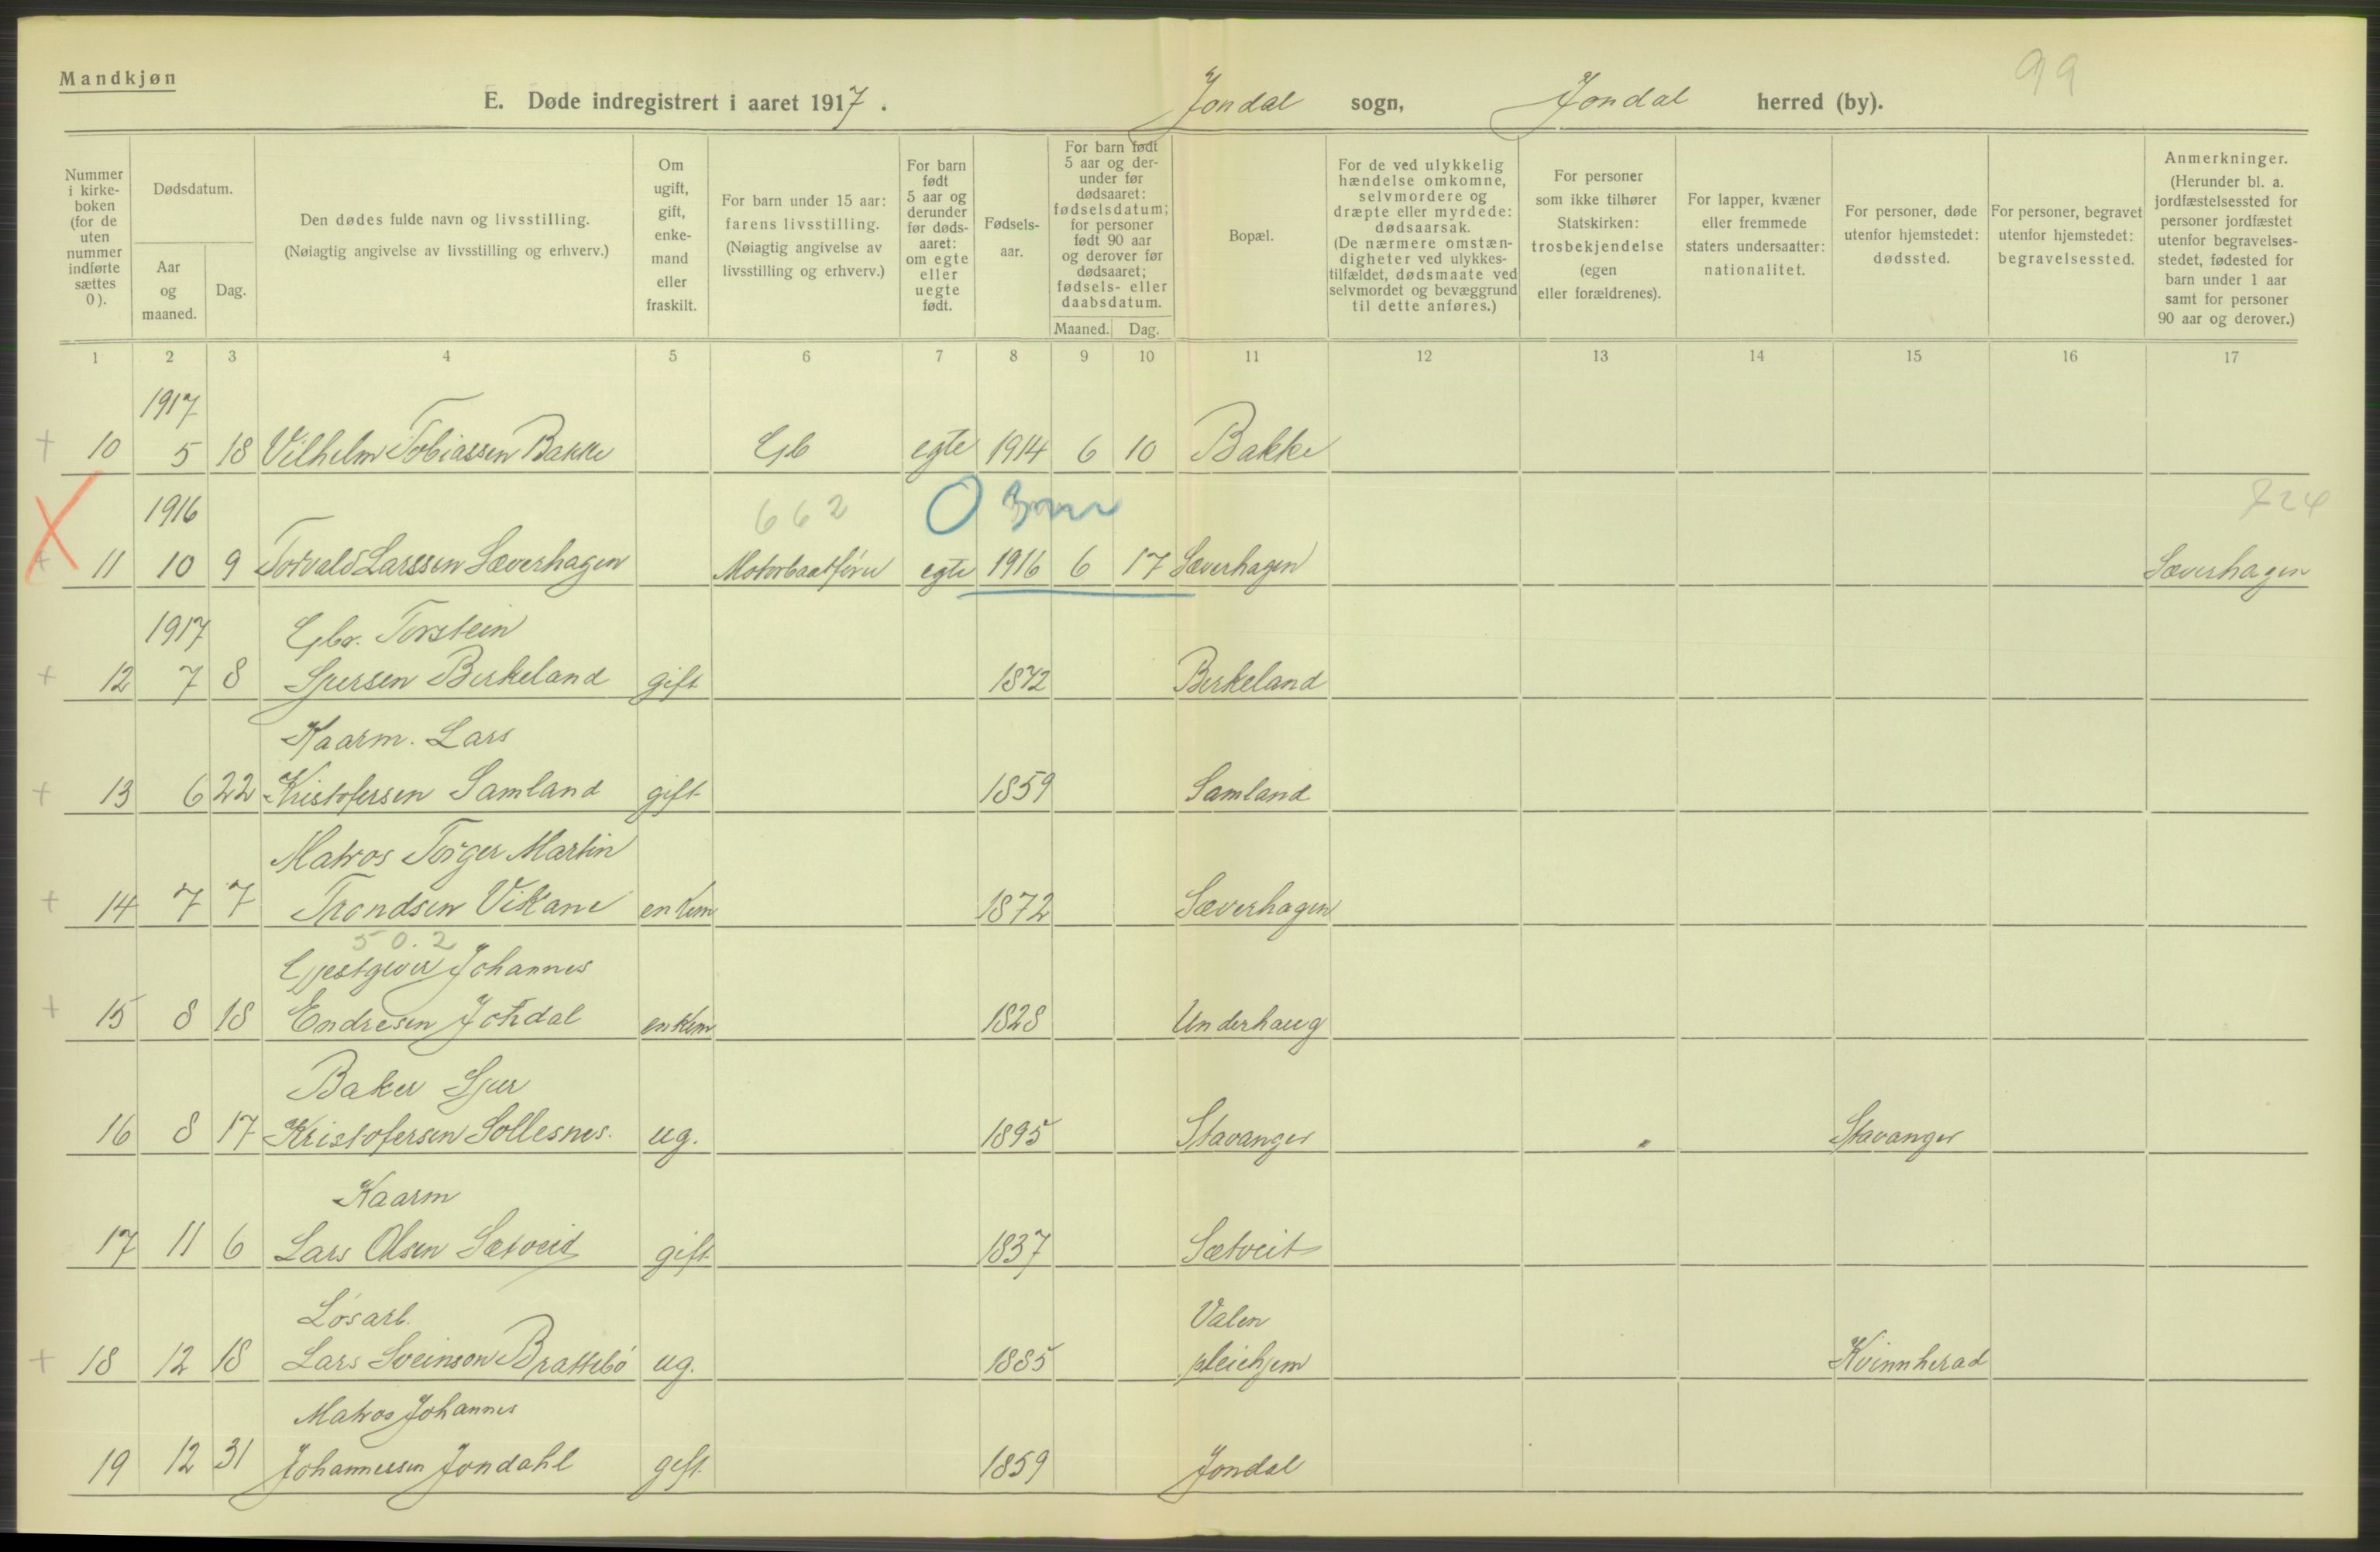 Mandkjøn
99
E. Døde indregistrert i aaret 1917. Jondal sogn, Jondal herred (by).
Nummer i kirke- boken (for de uten nummer indførte sættes 0).
Dødsdatum.
Aar og maaned.
Dag.
Den dødes fulde navn og livsstilling. (Nøiagtig angivelse av livsstilling og erhverv.)
Om ugift, gift, enke- mand eller fraskilt.
For barn under 15 aar: farens livsstilling. (Nøiagtig angivelse av livsstilling og erhverv.)
For barn født 5 aar og derunder før døds- aaret: om egte eller uegte født.
Fødsels- aar.
For barn født 5 aar og der- under før dødsaaret: fødselsdatum; for personer født 90 aar og derover før dødsaaret; fødsels- eller daabsdatum.
Maaned. Dag.
Bopæl.
For de ved ulykkelig hændelse omkomne, selvmordere og dræpte eller myrdede: dødsaarsak. (De nærmere omstæn- digheter ved ulykkes- tilfældet, dødsmaate ved selvmordet og bevæggrund til dette anføres.)
For personer som ikke tilhører Statskirken: trosbekjendelse (egen eller forældrenes).
For lapper, kvæner eller fremmede staters undersaatter: nationalitet.
For personer, døde utenfor hjemstedet: dødssted.
For personer, begravet utenfor hjemstedet: begravelsessted.
Anmerkninger. (Herunder bl. a. jordfæstelsessted for personer jordfæstet utenfor begravelses- stedet, fødested for barn under 1 aar samt for personer 90 aar og derover.)
1 2 3 4 5 6 7 8 9 10 11 12 13 14 15 16 17
1917
+ 10 5 18 Vilhelm Tobiassen Bakke Gb egte 1914 6 10 Bakke
X 1916 662 O Barn 724
+ 11 10 9 Torvald Larssen Sæverhagen Motorbaatfører egte 1916 6 17 Sæverhagen Sæverhagen
1917 Gbr. Torstein
+ 12 7 8 Sjursen Birkeland gift 1872 Birkeland
Kaarm. Lars
+ 13 6 22 Kristofersen Samland gift 1859 Samland
Matros Torger Martin
+ 14 7 7 Trondsen Vikane enkem 1872 Sæverhagen
50.2
Gjestgiver Johannes
+ 15 8 18 Endresen Jondal enkem 1828 Underhaug
Baker Sjur
16 8 17 Kristofersen Sollesnes. ug. 1895 Stavanger " Stavanger
Kaarm
17 11 6 Lars Olsen Sætveit gift 1837 Sætveit
Løsarb. Valen
+ 18 12 18 Lars Sveinson Brattebø ug. 1885 pleiehjem Kvinnherad
Matros Johannes
19 12 31 Johannessen Jondahl gift. 1859 Jondal